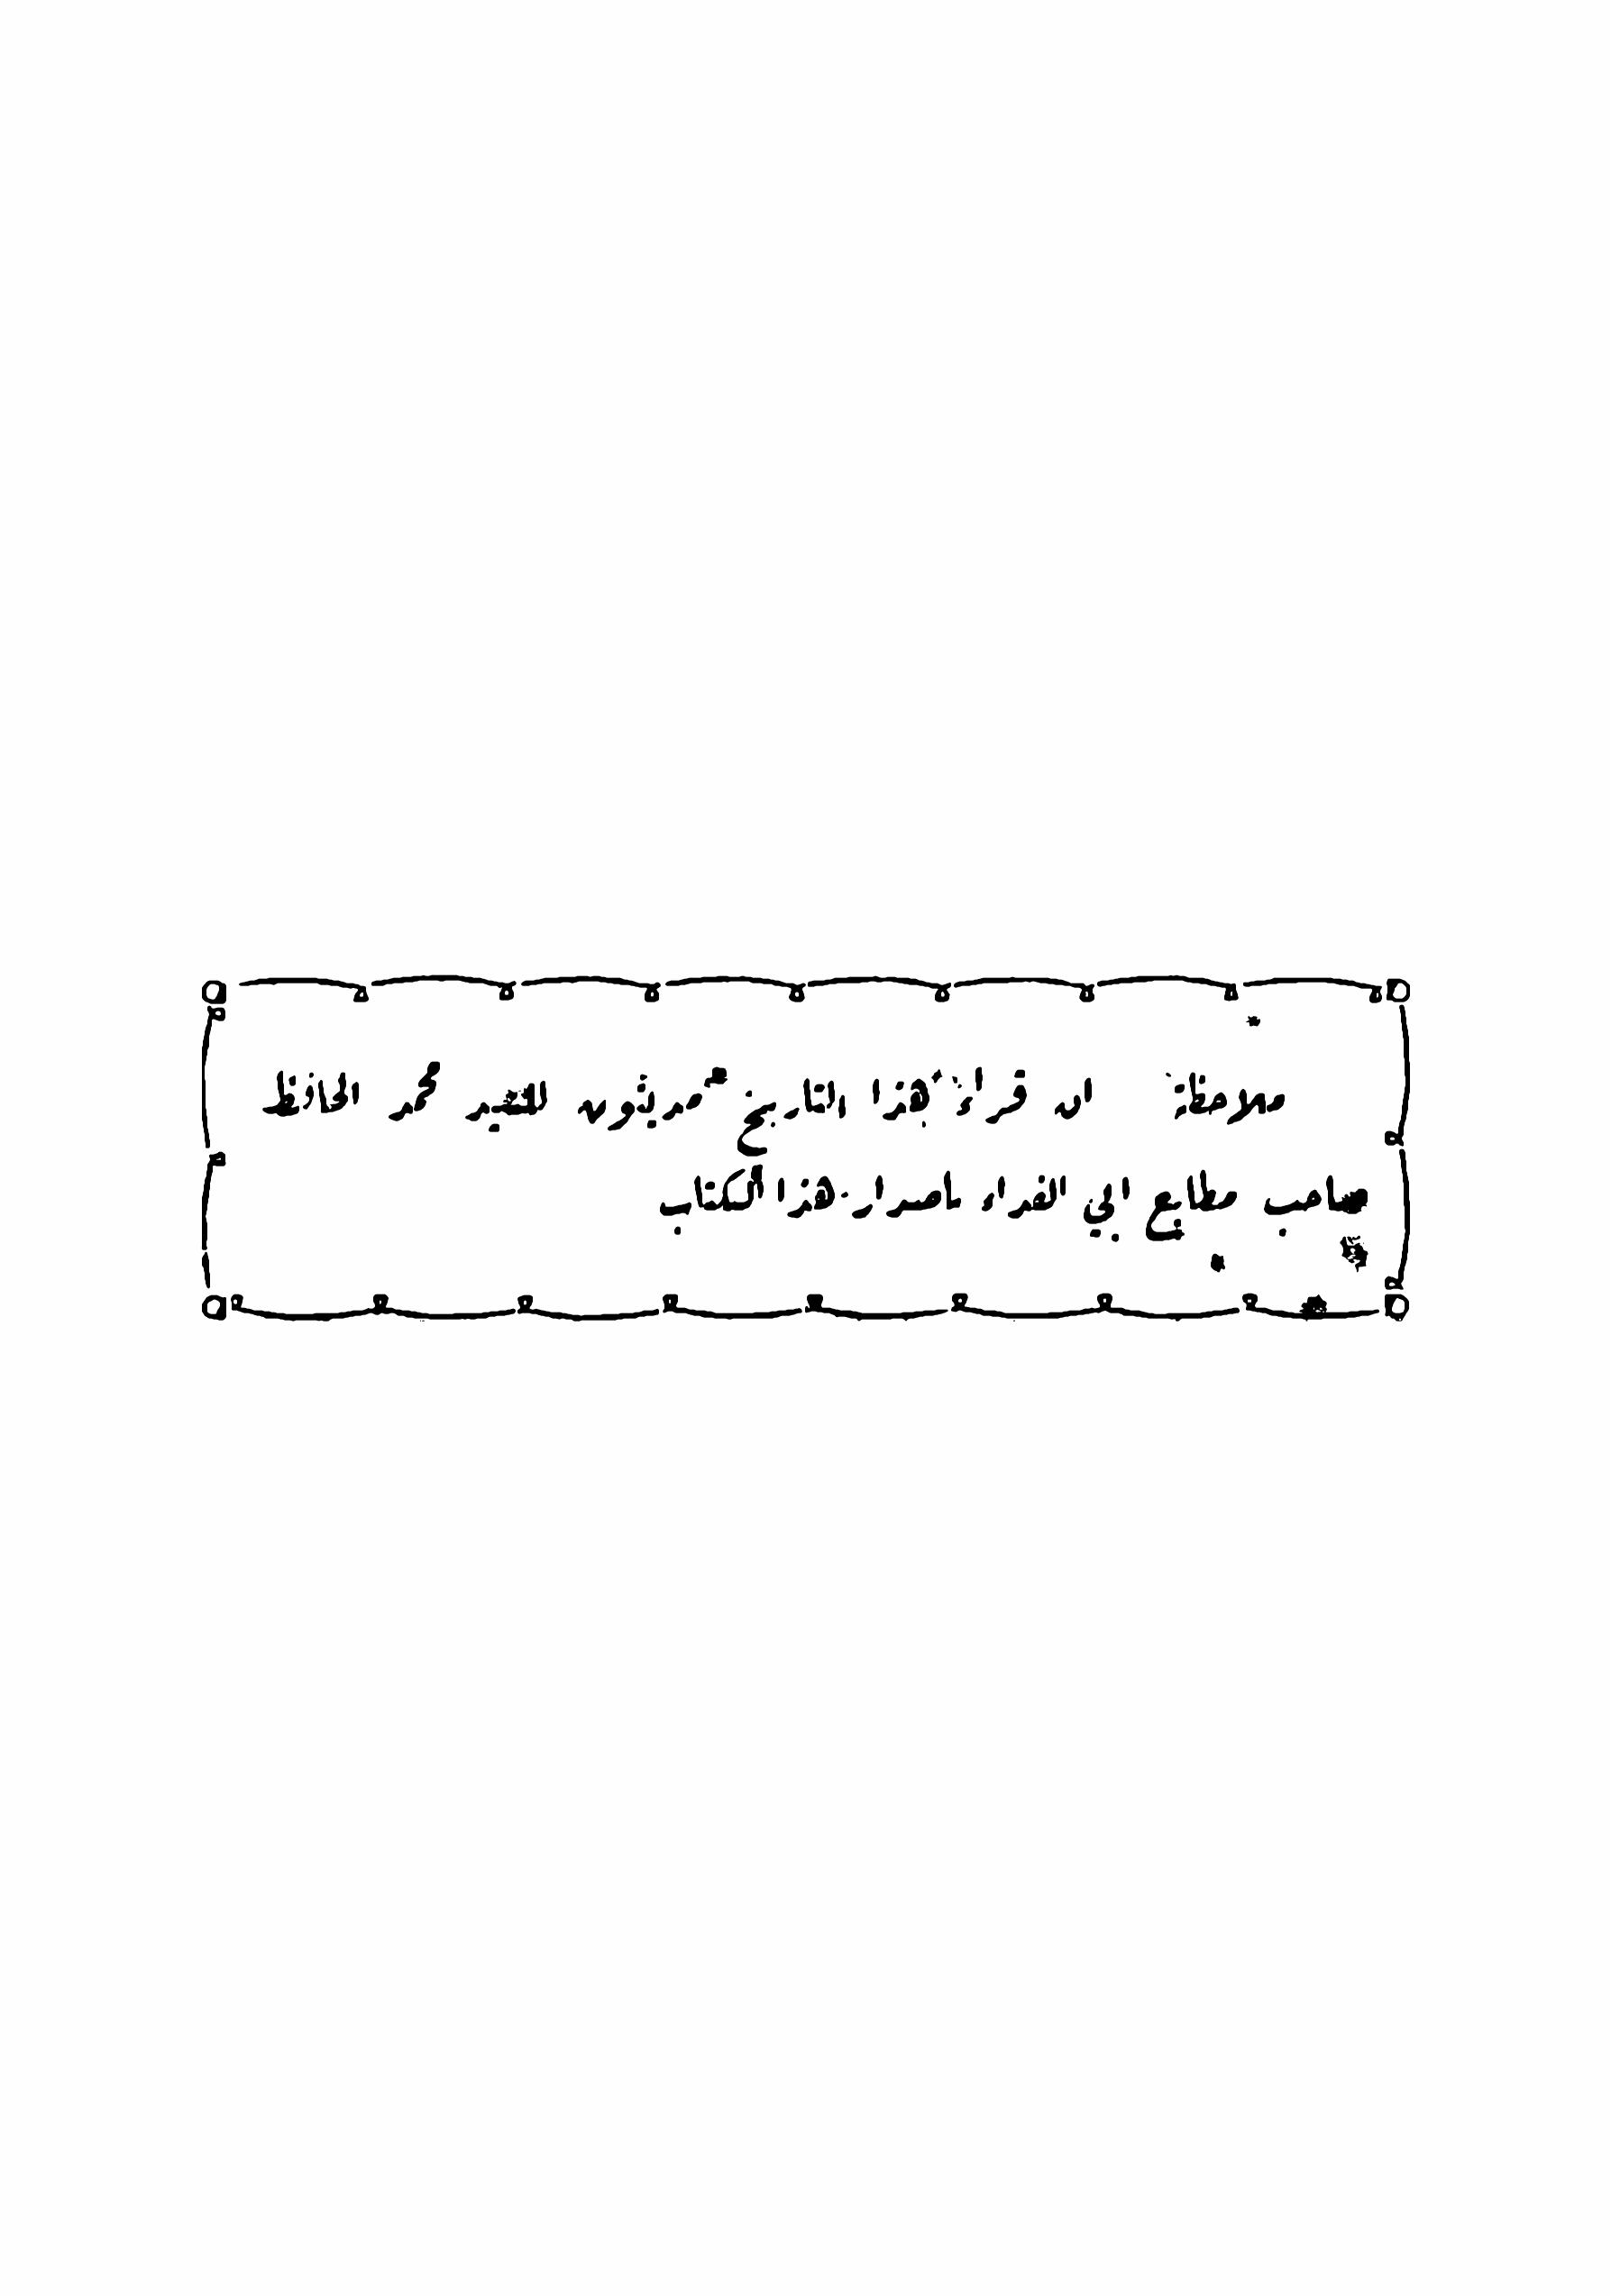 ملاحظة ان قراء هذا التاريخ مدينون للسيد محمد الحافظ
صاحب مطابع ابي الفداء باصدار هذا الكتاب